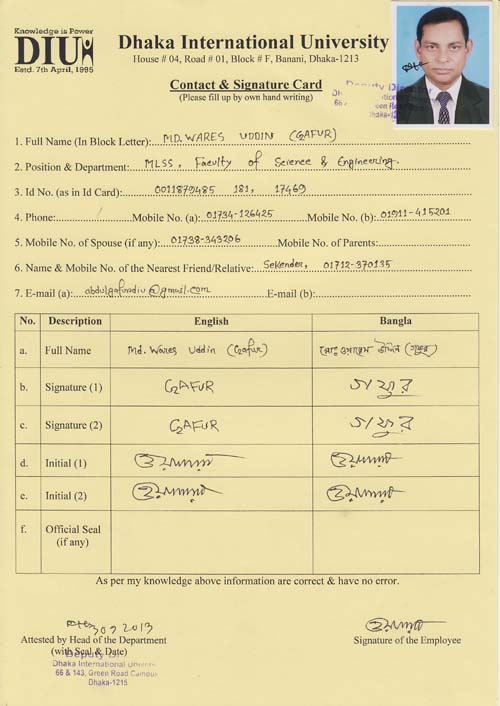 Knowledge is Power
DIU
Estd. 7th April, 1995
Dhaka International University
House # 04, Road # 01, Block # F, Banani, Dhaka-1213
Contact & Signature Card
(Please fill up by own hand writing)
Deputy Director
1. Full Name (In Block Letter): MD. WARES UDDIN (GAFUR)
2. Position & Department: MLSS, Faculty of Science & Engineering.
3. Id No. (as in Id Card): 0011879485 181, 17469
4. Phone: / Mobile No. (a): 01734-126425 Mobile No. (b): 01911-415201
5. Mobile No. of Spouse (if any): 01738-343206 Mobile No. of Parents:
6. Name & Mobile No. of the Nearest Friend/Relative: Sekender, 01712-370135
7. E-mail (a): abdulgafurdiu@gmail.com E-mail (b):
No. Description English Bangla
a. Full Name Md. Wares Uddin (Gafur) মোঃ ওয়ারেস উদ্দিন (গফুর)
b. Signature (1) GAFUR গফুর
c. Signature (2) GAFUR গফুর
d. Initial (1)
e. Initial (2)
f. Official Seal
(if any)
As per my knowledge above information are correct & have no error.
2013
Attested by Head of the Department
(with Seal & Date)
Signature of the Employee
Dhaka International University
66 & 143, Green Road Campus
Dhaka-1215